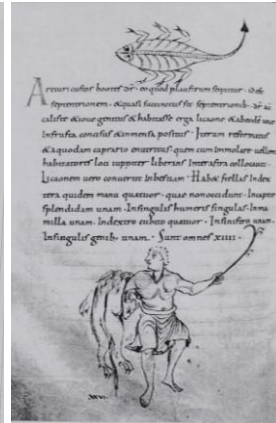 Arcturi custos bootes dr eo quod plaustrum sequitur · id e
septentrionem · & quasi succinctus sit septentrionib · dr
calistes & ioue genitus & habitasse erga licaone & ab
Infrusta concisus & inmensa positus · Iterum reformatus
& aquodam caprario enutritus quem cum Immolare uellent
habitatores loci iuppiter liberans Interastra collocauit ·
Licaonem uero conuertit Inbestiam · Hab& stellas Index
tera quidem manu quatuor · quae nonoccidunt · Incapite
splendidam unam · Insingulis humeris singulas · Inma
milla unam · Indextero cubito quatuor · Insinistro unam ·
Insingulis genib · unam · Sunt omnes xiiii ·